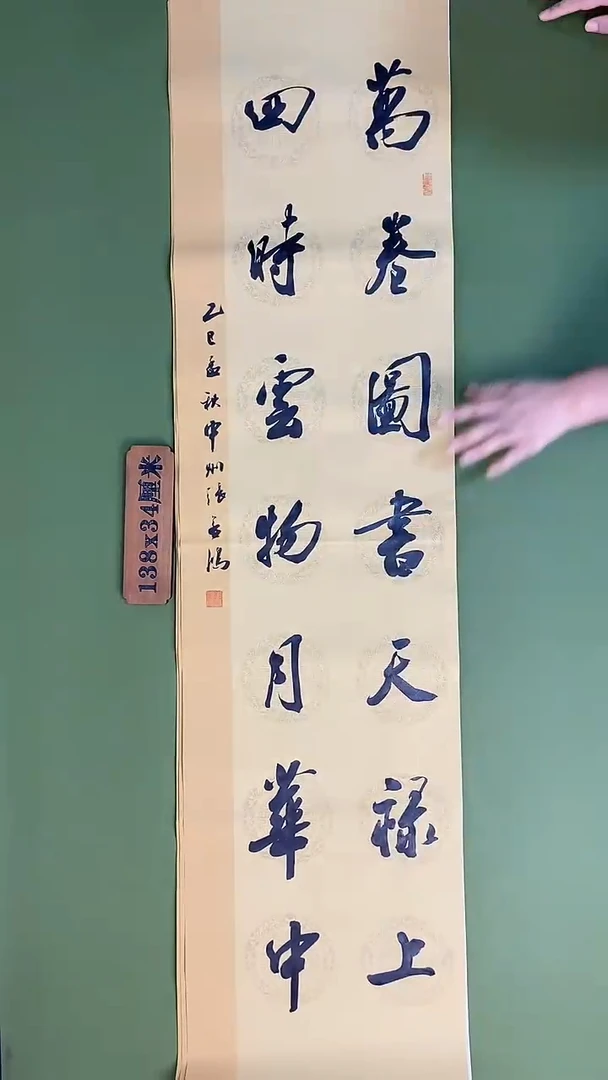 萬卷圖書天禄上
四時雲物月華中
乙巳孟秋中州張
138x34厘米